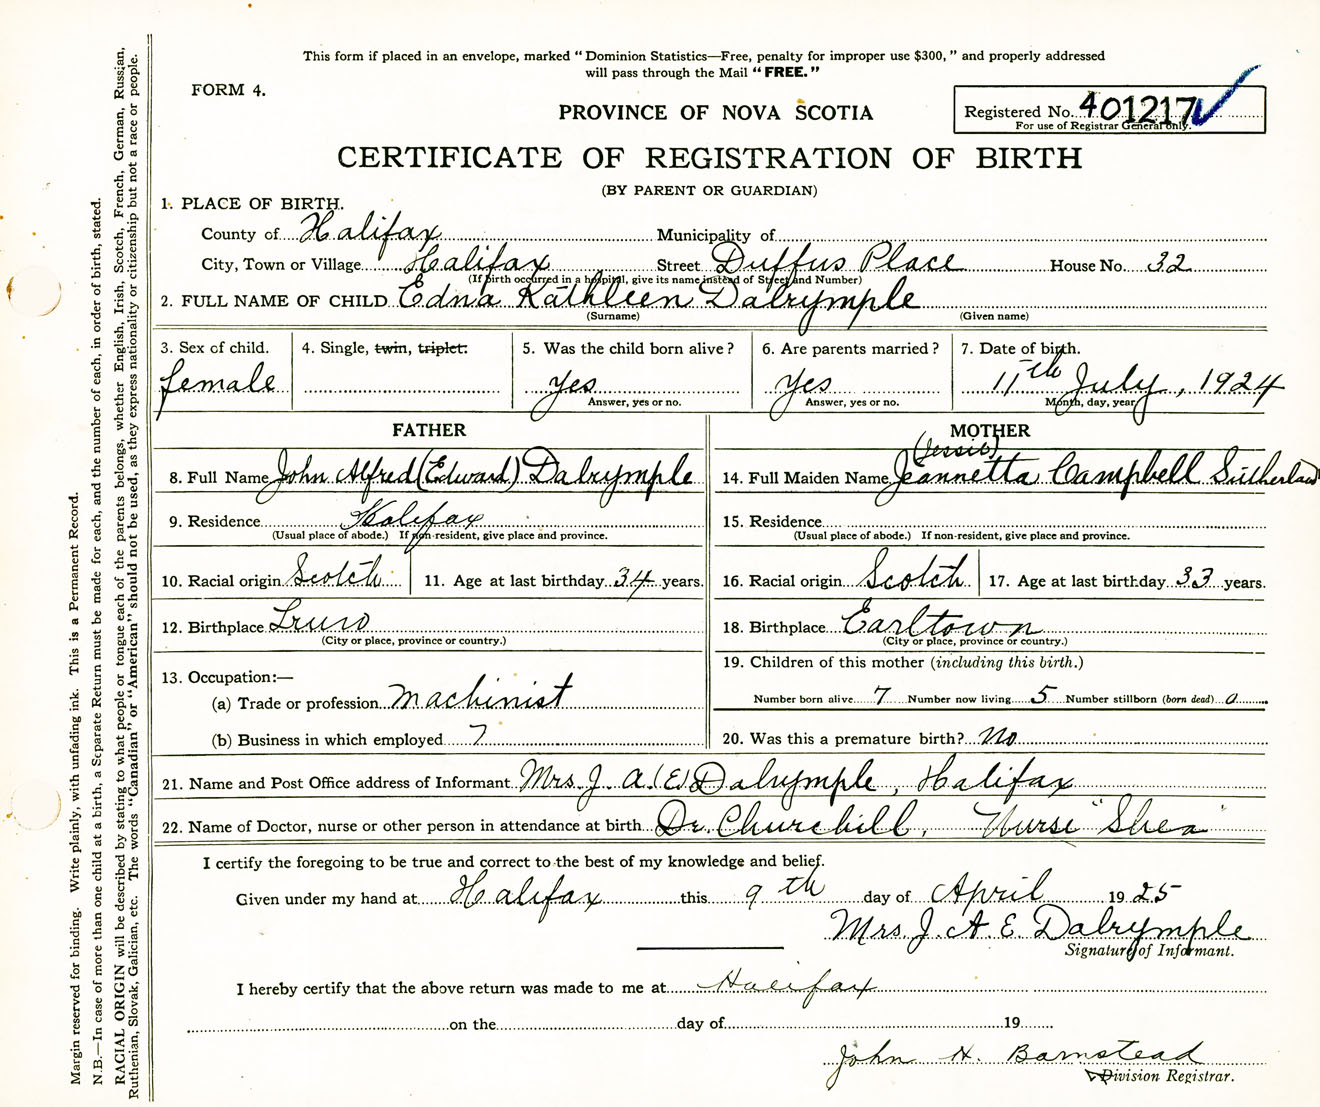 This form if placed in an envelope, marked "Dominion Statistics—Free, penalty for improper use $300," and properly addressed
will pass through the Mail "FREE."
FORM 4.
PROVINCE OF NOVA SCOTIA
Registered No. 401217 ✓
For use of Registrar General only.
CERTIFICATE OF REGISTRATION OF BIRTH
(BY PARENT OR GUARDIAN)
1. PLACE OF BIRTH.
County of Halifax Municipality of
City, Town or Village Halifax Street Duffus Place House No. 32
(If birth occurred in a hospital, give its name instead of Street and Number)
2. FULL NAME OF CHILD Edna Kathleen Dalrymple
(Surname) (Given name)
3. Sex of child. 4. Single, twin, triplet. 5. Was the child born alive? 6. Are parents married? 7. Date of birth.
female yes yes 11th July, 1924
Answer, yes or no. Answer, yes or no. Month, day, year
FATHER MOTHER
(Jessie)
8. Full Name John Alfred (Edward) Dalrymple 14. Full Maiden Name Jeannetta Campbell Sutherland
9. Residence Halifax 15. Residence
(Usual place of abode.) If non-resident, give place and province. (Usual place of abode.) If non-resident, give place and province.
10. Racial origin Scotch 11. Age at last birthday 34 years. 16. Racial origin Scotch 17. Age at last birthday 33 years.
12. Birthplace Truro 18. Birthplace Earltown
(City or place, province or country.) (City or place, province or country.)
19. Children of this mother (including this birth.)
13. Occupation:—
(a) Trade or profession Machinist Number born alive 7 Number now living 5 Number stillborn (born dead) 0
(b) Business in which employed 7 20. Was this a premature birth? No
21. Name and Post Office address of Informant Mrs. J. A. (E) Dalrymple, Halifax
22. Name of Doctor, nurse or other person in attendance at birth Dr. Churchill, Nurse "Shea"
I certify the foregoing to be true and correct to the best of my knowledge and belief.
Given under my hand at Halifax this 9th day of April 1925
Mrs. J. A. E. Dalrymple
Signature of Informant.
I hereby certify that the above return was made to me at Halifax
on the day of 19
John H. Barnstead
Division Registrar.
Margin reserved for binding. Write plainly, with unfading ink. This is a Permanent Record.
N.B.—In case of more than one child at a birth, a Separate Return must be made for each, and the number of each, in order of birth, stated.
RACIAL ORIGIN will be described by stating to what people or tongue each of the parents belongs, whether English, Irish, Scotch, French, German, Russian,
Ruthenian, Slovak, Galician, etc. The words "Canadian" or "American" should not be used, as they express nationality or citizenship but not a race or people.